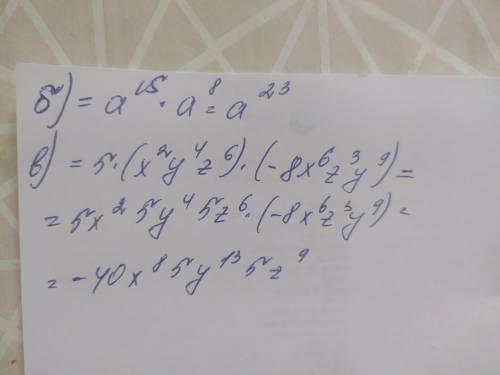 б) = a¹⁵ · a⁸ = a²³
в) = 5·(x²y⁴z⁶)·(-8x⁶z³y⁹) =
= 5x²5y⁴5z⁶·(-8x⁶z³y⁹) =
= -40x⁸5y¹³5z⁹